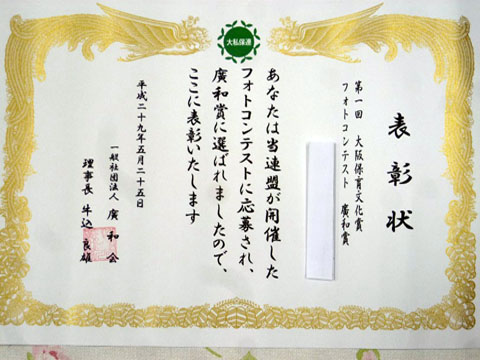 大私保連
表彰状
第一回 大阪保育文化賞
フォトコンテスト 廣和賞
あなたは当連盟が開催した
フォトコンテストに応募され、
廣和賞に選ばれましたので、
ここに表彰いたします
平成二十九年五月二十五日
一般社団法人 廣和会
理事長 牛込良雄